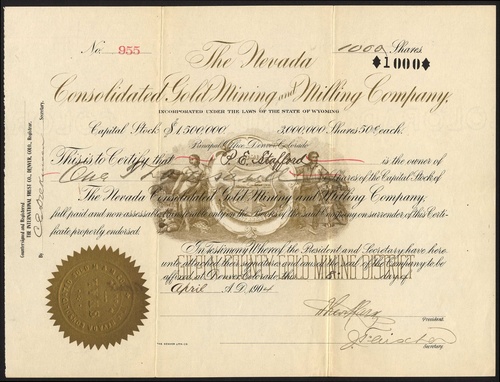 No. 955 The Nevada 1000 Shares
♦1000♦
Consolidated Gold Mining and Milling Company.
INCORPORATED UNDER THE LAWS OF THE STATE OF WYOMING
Capital Stock $1,500,000 3,000,000 Shares 50¢ each.
Principal Office, Denver, Colorado
This is to Certify that P. E. Stafford is the owner of
One Thousand Shares of the Capital Stock of
The Nevada Consolidated Gold Mining and Milling Company;
full paid and non-assessable transferable only on the Books of the said Company on surrender of this Certi-
ficate properly endorsed.
In Testimony Whereof the President and Secretary have here
unto attached their signatures and caused the seal of the Company to be
affixed at Denver Colorado this 8 day of
April A.D. 1904
President
Secretary
Countersigned and Registered
THE INTERNATIONAL TRUST CO., DENVER, COLO., Registrar.
By
Secretary.